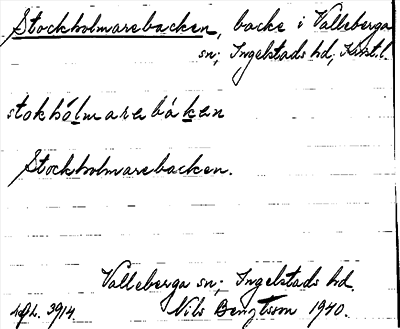 Stockholmarebacken, backe i Valleberga
sn; Ingelstads hd, Krist. l.
stokhólmarebáken
Stockholmarebacken.
Valleberga sn; Ingelstads hd.
3914. Nils Bengtsson 1940.